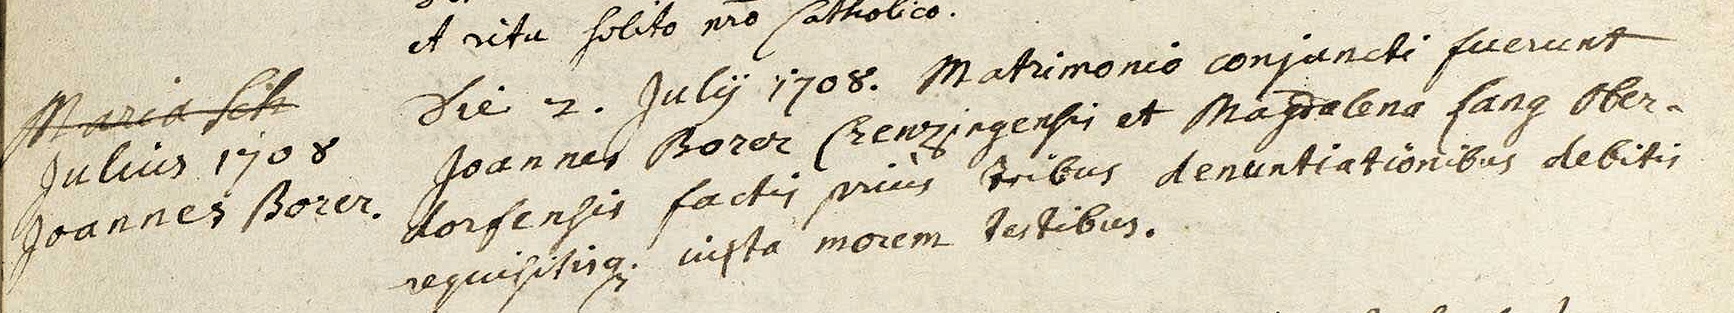 et ritu solito nrō Catholico.
Maria Sch
Julius 1708
Joannes Borer.
Die 2. Julÿ 1708. Matrimonio conjuncti fuerunt
Joannes Borer Grenzingensis et Magdalena Lang Ober-
dorfensis factis prius tribus denuntiationibus debitis
requisitisq; iuxta morem testibus.